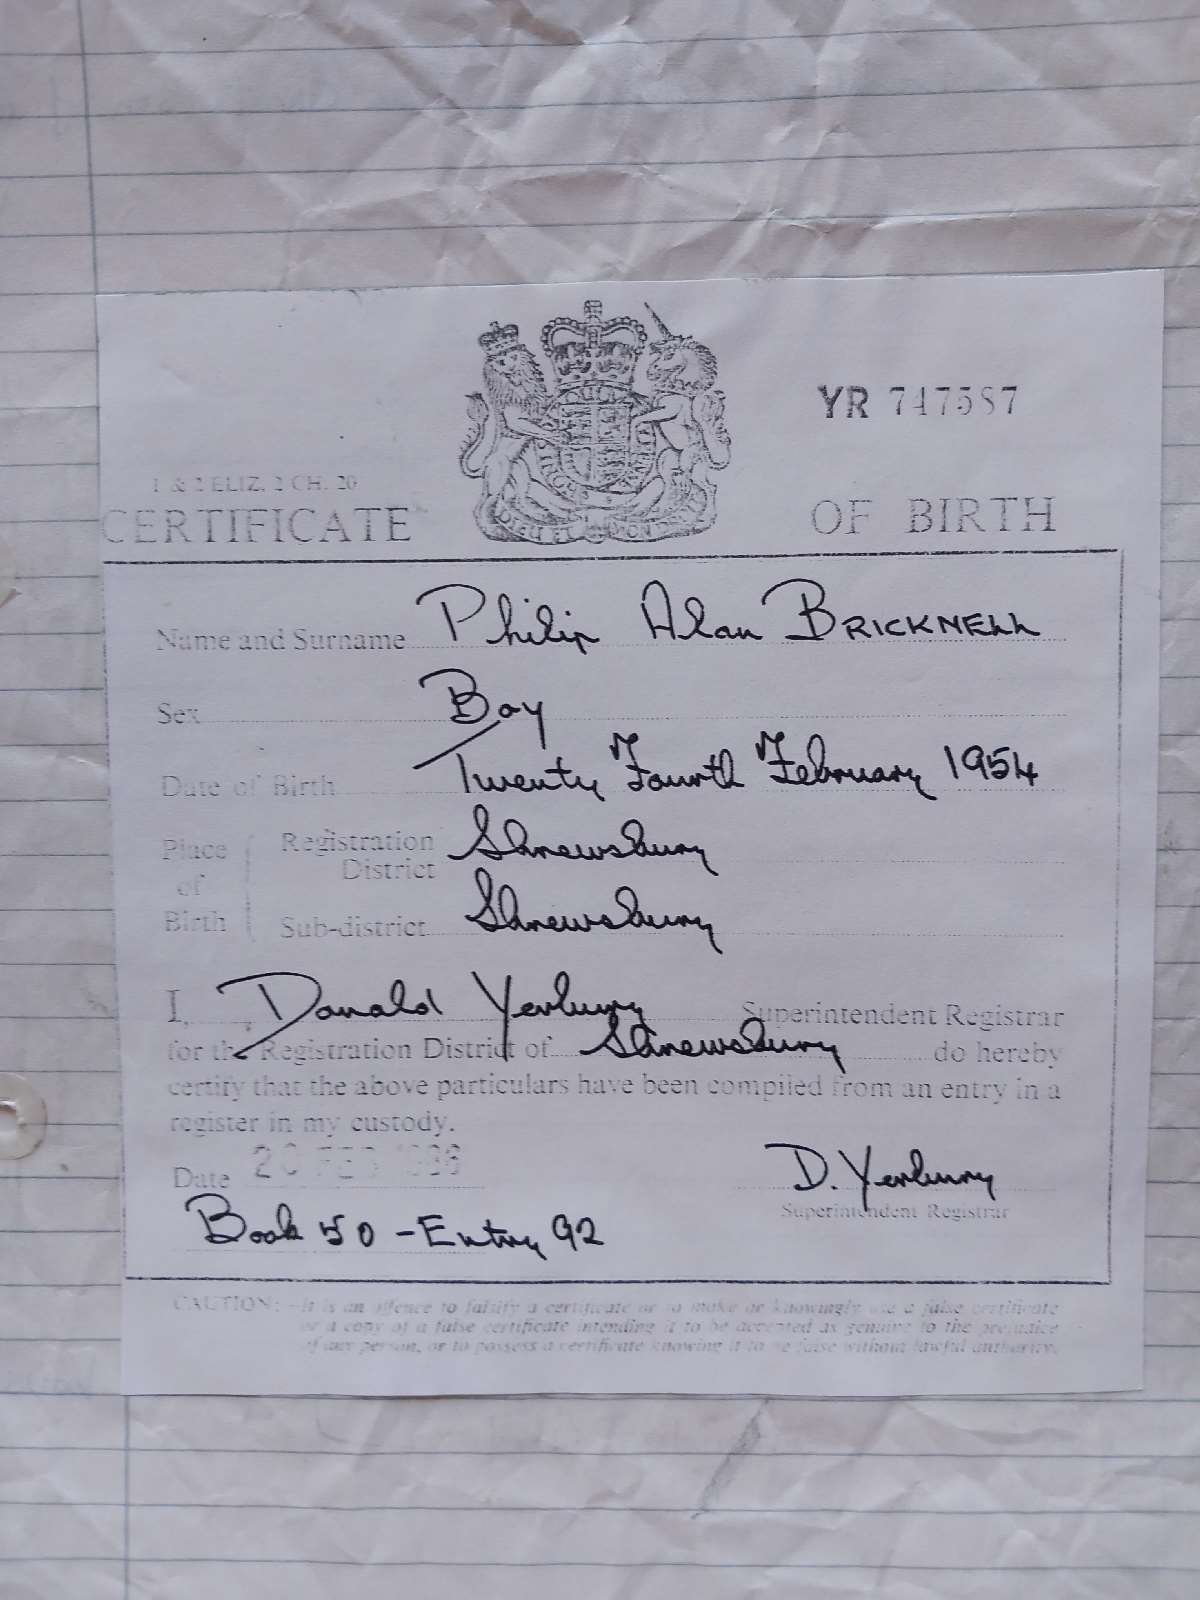 YR 747587
1 & 2 ELIZ. 2 CH. 20
CERTIFICATE OF BIRTH
Name and Surname Philip Alan BRICKNELL
Sex Boy
Date of Birth Twenty Fourth February 1954
Place of Birth
Registration District Shrewsbury
Sub-district Shrewsbury
I, Donald Yerbury Superintendent Registrar
for the Registration District of Shrewsbury do hereby
certify that the above particulars have been compiled from an entry in a
register in my custody.
Date FEB
D. Yerbury
Superintendent Registrar
Book 50 - Entry 92
CAUTION:—It is an offence to falsify a certificate or to make or knowingly use a false certificate
or a copy of a false certificate intending it to be accepted as genuine to the prejudice
of any person, or to possess a certificate knowing it to be false without lawful authority.